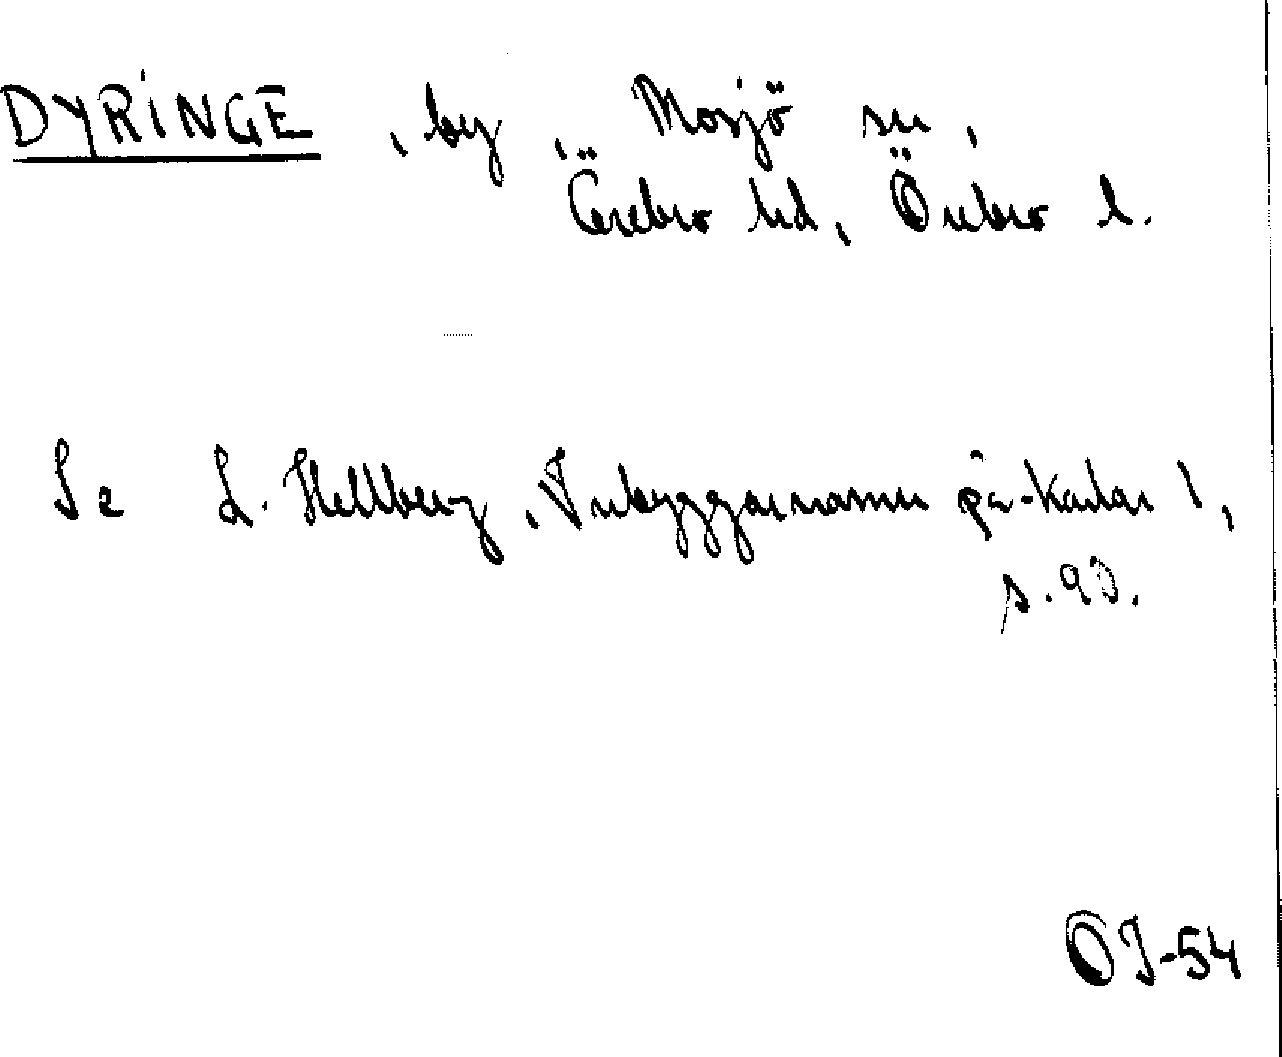 DYRINGE, by, Mosjö sn,
Örebro hd, Örebro l.
Se L. Hellberg, Inbyggarnamn på -karlar 1,
s. 90.
OJ-54